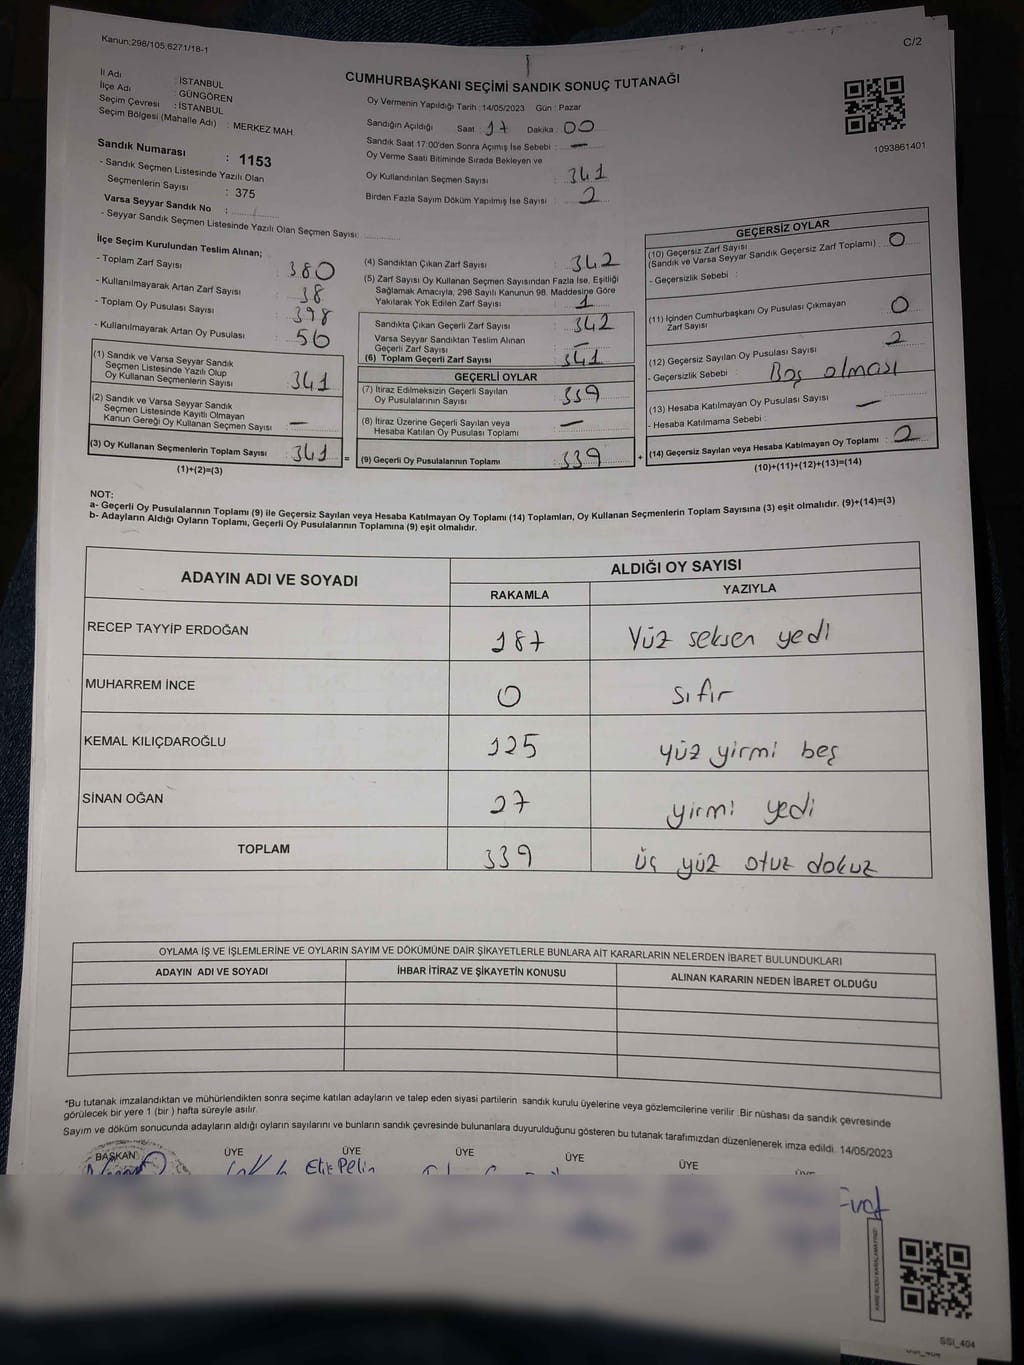 Kanun:298/105,6271/18-1
C/2
İl Adı : İSTANBUL
İlçe Adı : GÜNGÖREN
Seçim Çevresi : İSTANBUL
Seçim Bölgesi (Mahalle Adı) : MERKEZ MAH.
Sandık Numarası : 1153
- Sandık Seçmen Listesinde Yazılı Olan
Seçmenlerin Sayısı : 375
Varsa Seyyar Sandık No :
- Seyyar Sandık Seçmen Listesinde Yazılı Olan Seçmen Sayısı:
CUMHURBAŞKANI SEÇİMİ SANDIK SONUÇ TUTANAĞI
Oy Vermenin Yapıldığı Tarih : 14/05/2023 Gün : Pazar
Sandığın Açıldığı Saat : 17 Dakika : 00
Sandık Saat 17:00'den Sonra Açımış İse Sebebi : —
Oy Verme Saati Bitiminde Sırada Bekleyen ve
Oy Kullandırılan Seçmen Sayısı : 341
Birden Fazla Sayım Döküm Yapılmış İse Sayısı : 2
1093861401
İlçe Seçim Kurulundan Teslim Alınan;
- Toplam Zarf Sayısı : 380
- Kullanılmayarak Artan Zarf Sayısı : 38
- Toplam Oy Pusulası Sayısı : 398
- Kullanılmayarak Artan Oy Pusulası : 56
(1) Sandık ve Varsa Seyyar Sandık
Seçmen Listesinde Yazılı Olup
Oy Kullanan Seçmenlerin Sayısı : 341
(2) Sandık ve Varsa Seyyar Sandık
Seçmen Listesinde Kayıtlı Olmayan
Kanun Gereği Oy Kullanan Seçmen Sayısı : —
(3) Oy Kullanan Seçmenlerin Toplam Sayısı : 341 =
(1)+(2)=(3)
(4) Sandıktan Çıkan Zarf Sayısı : 342
(5) Zarf Sayısı Oy Kullanan Seçmen Sayısından Fazla İse, Eşitliği
Sağlamak Amacıyla, 298 Sayılı Kanunun 98. Maddesine Göre
Yakılarak Yok Edilen Zarf Sayısı : 1
Sandıkta Çıkan Geçerli Zarf Sayısı : 342
Varsa Seyyar Sandıktan Teslim Alınan
Geçerli Zarf Sayısı : —
(6) Toplam Geçerli Zarf Sayısı : 341
GEÇERLİ OYLAR
(7) İtiraz Edilmeksizin Geçerli Sayılan
Oy Pusulalarının Sayısı : 339
(8) İtiraz Üzerine Geçerli Sayılan veya
Hesaba Katılan Oy Pusulası Toplamı : —
(9) Geçerli Oy Pusulalarının Toplamı : 339 +
GEÇERSİZ OYLAR
(10) Geçersiz Zarf Sayısı
(Sandık ve Varsa Seyyar Sandık Geçersiz Zarf Toplamı) : 0
- Geçersizlik Sebebi :
(11) İçinden Cumhurbaşkanı Oy Pusulası Çıkmayan
Zarf Sayısı : 0
(12) Geçersiz Sayılan Oy Pusulası Sayısı : 2
- Geçersizlik Sebebi : Boş olması
(13) Hesaba Katılmayan Oy Pusulası Sayısı : —
- Hesaba Katılmama Sebebi :
(14) Geçersiz Sayılan veya Hesaba Katılmayan Oy Toplamı : 2
(10)+(11)+(12)+(13)=(14)
NOT:
a- Geçerli Oy Pusulalarının Toplamı (9) ile Geçersiz Sayılan veya Hesaba Katılmayan Oy Toplamı (14) Toplamları, Oy Kullanan Seçmenlerin Toplam Sayısına (3) eşit olmalıdır. (9)+(14)=(3)
b- Adayların Aldığı Oyların Toplamı, Geçerli Oy Pusulalarının Toplamına (9) eşit olmalıdır.
ADAYIN ADI VE SOYADI
ALDIĞI OY SAYISI
RAKAMLA YAZIYLA
RECEP TAYYİP ERDOĞAN 187 Yüz seksen yedi
MUHARREM İNCE 0 sıfır
KEMAL KILIÇDAROĞLU 125 yüz yirmi beş
SİNAN OĞAN 27 yirmi yedi
TOPLAM 339 üç yüz otuz dokuz
OYLAMA İŞ VE İŞLEMLERİNE VE OYLARIN SAYIM VE DÖKÜMÜNE DAİR ŞİKAYETLERLE BUNLARA AİT KARARLARIN NELERDEN İBARET BULUNDUKLARI
ADAYIN ADI VE SOYADI İHBAR İTİRAZ VE ŞİKAYETİN KONUSU ALINAN KARARIN NEDEN İBARET OLDUĞU
*Bu tutanak imzalandıktan ve mühürlendikten sonra seçime katılan adayların ve talep eden siyasi partilerin sandık kurulu üyelerine veya gözlemcilerine verilir. Bir nüshası da sandık çevresinde
görülecek bir yere 1 (bir ) hafta süreyle asılır.
Sayım ve döküm sonucunda adayların aldığı oyların sayılarını ve bunların sandık çevresinde bulunanlara duyurulduğunu gösteren bu tutanak tarafımızdan düzenlenerek imza edildi. 14/05/2023
BAŞKAN ÜYE ÜYE ÜYE ÜYE ÜYE
Elif Pelin
SSI_404